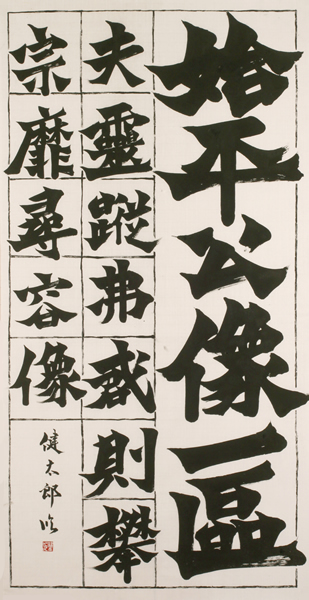 始平公像一區
夫靈蹤弗則攀
宗靡尋容像
健太郎臨